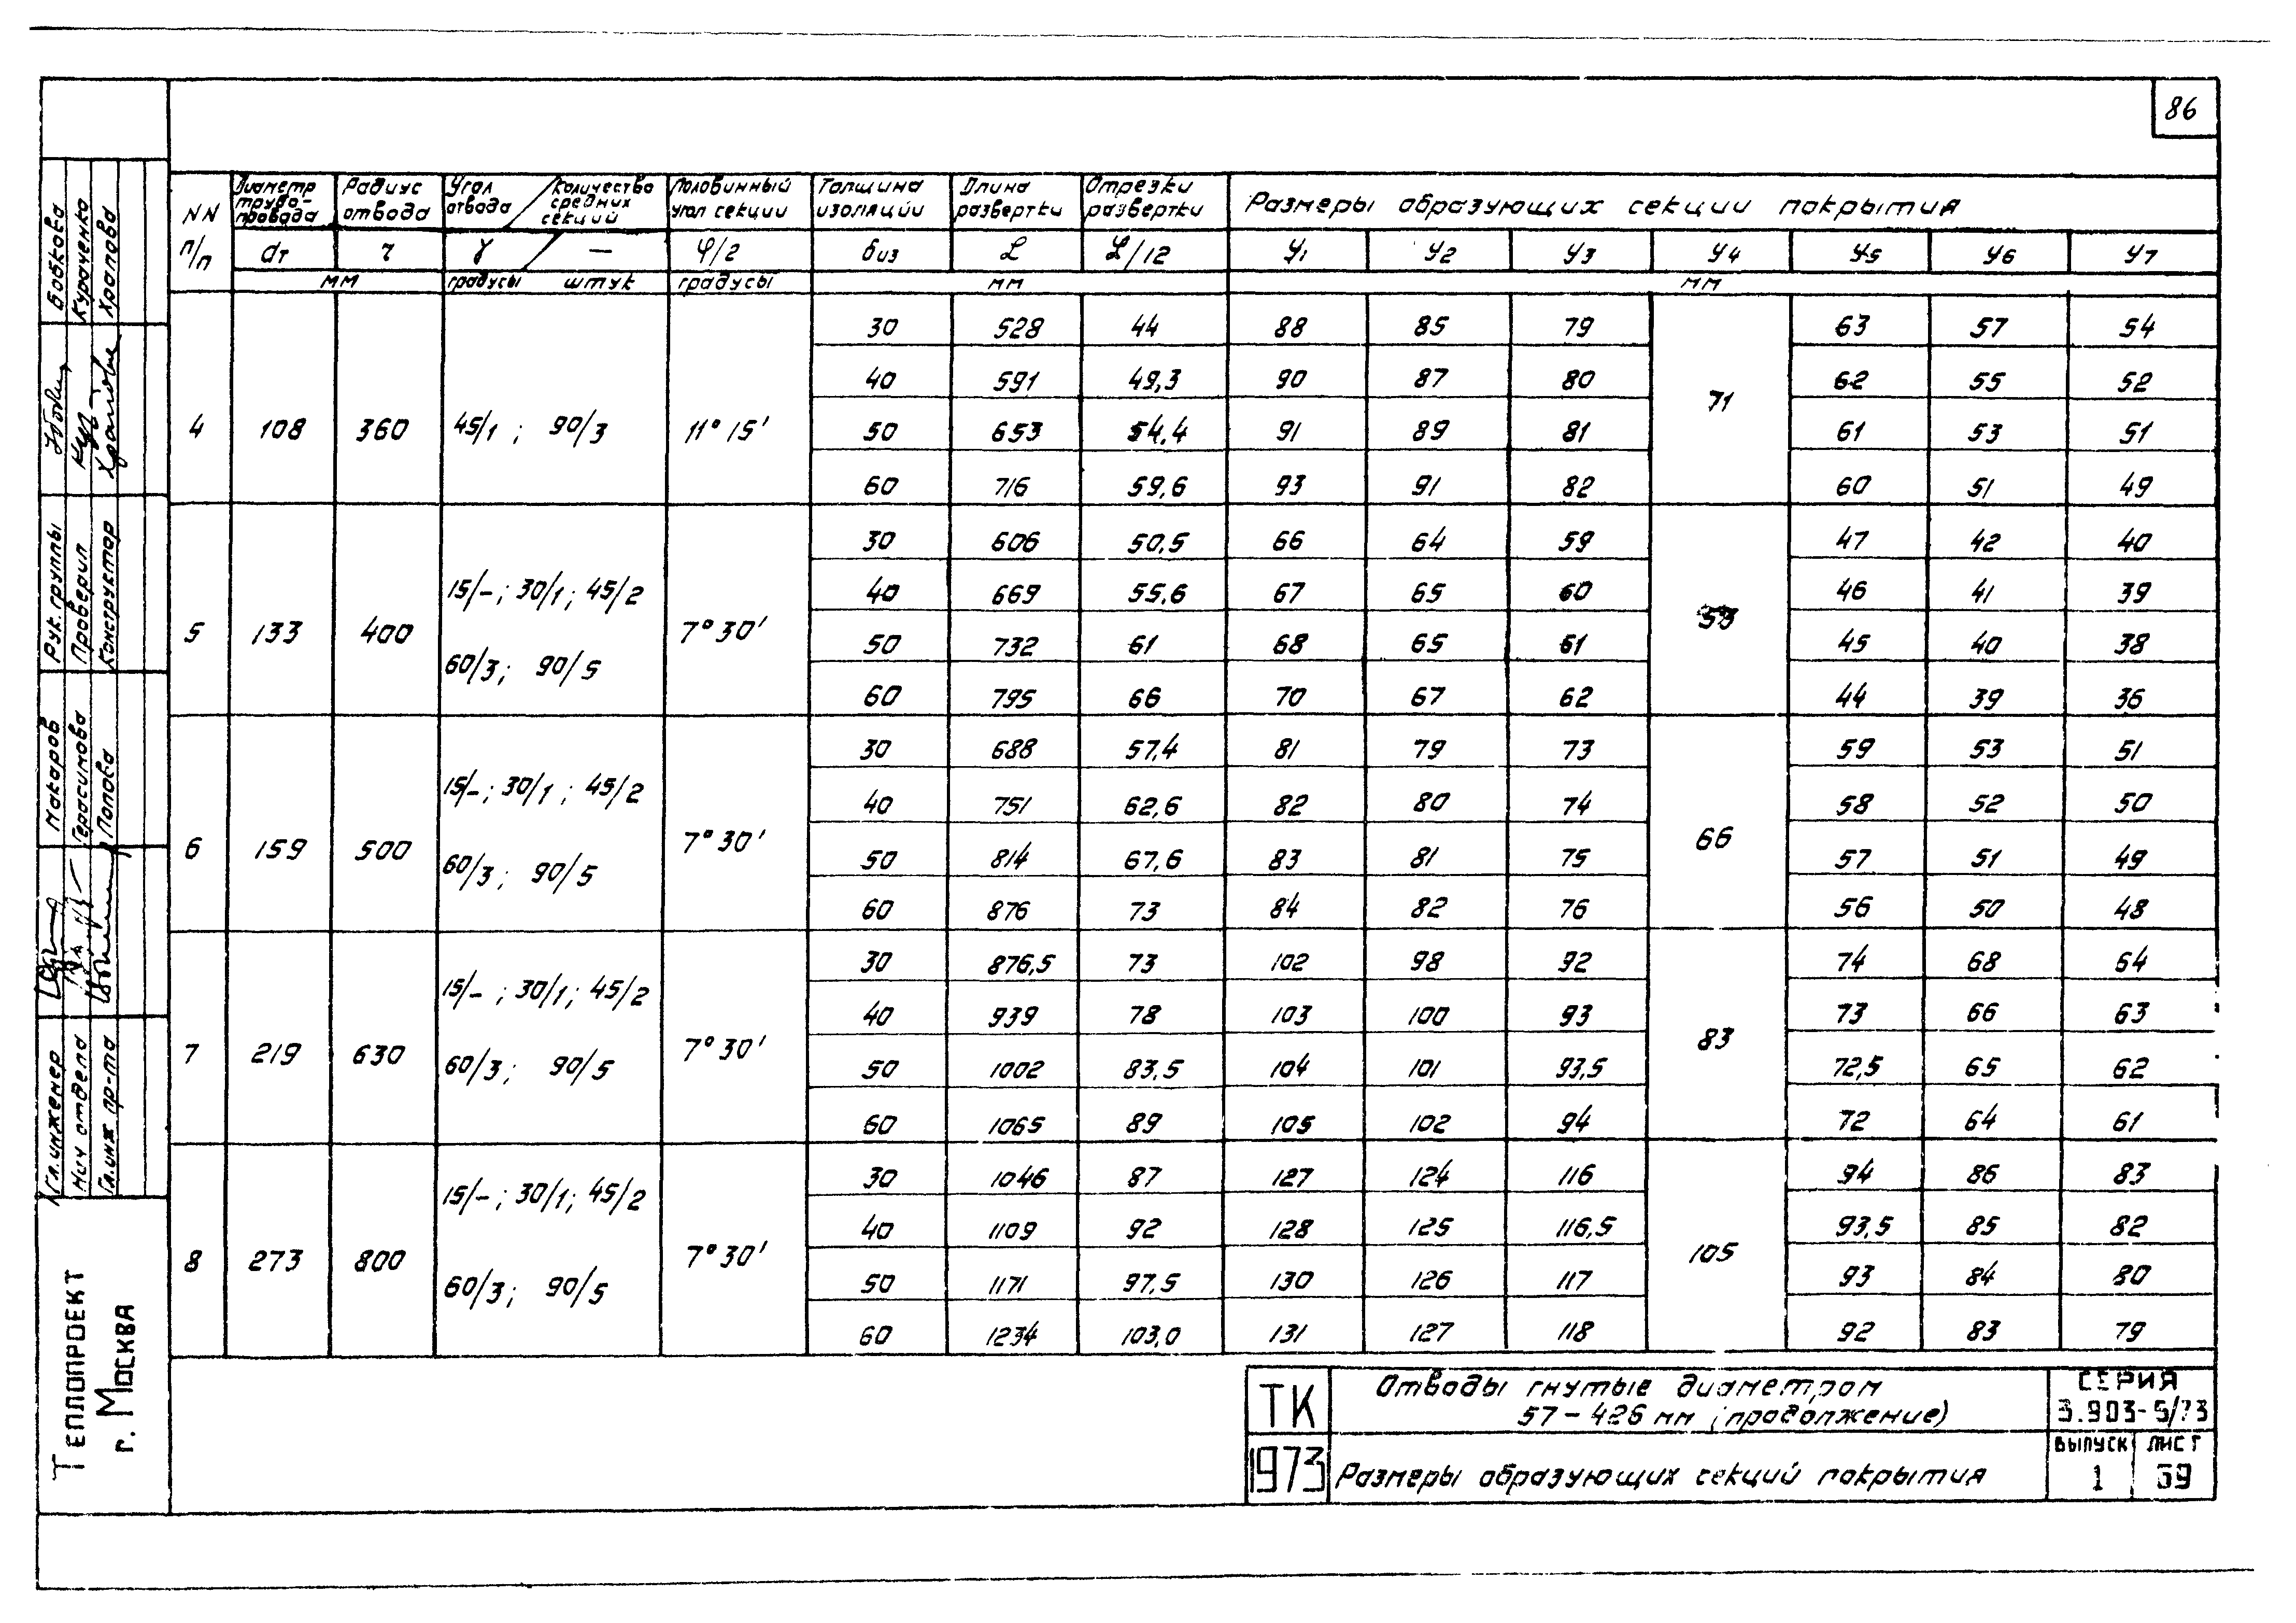 86
NN п/п | Диаметр трубо-провода | Радиус отвода | Угол отвода / Количество средних секций | Половинный угол секции | Толщина изоляции | Длина развертки | Отрезки развертки | Размеры образующих секции покрытия
dт | r | γ / — | φ/2 | биз | L | L/12 | У1 | У2 | У3 | У4 | У5 | У6 | У7
мм | градусы штук | градусы | мм | мм
4 | 108 | 360 | 45/1 ; 90/3 | 11° 15' | 71
30 | 528 | 44 | 88 | 85 | 79 | 63 | 57 | 54
40 | 591 | 49,3 | 90 | 87 | 80 | 62 | 55 | 52
50 | 653 | 54,4 | 91 | 89 | 81 | 61 | 53 | 51
60 | 716 | 59,6 | 93 | 91 | 82 | 60 | 51 | 49
5 | 133 | 400 | 15/–; 30/1; 45/2 | 7° 30' | 53
60/3; 90/5
30 | 606 | 50,5 | 66 | 64 | 59 | 47 | 42 | 40
40 | 669 | 55,6 | 67 | 65 | 60 | 46 | 41 | 39
50 | 732 | 61 | 68 | 65 | 61 | 45 | 40 | 38
60 | 795 | 66 | 70 | 67 | 62 | 44 | 39 | 36
6 | 159 | 500 | 15/–; 30/1; 45/2 | 7° 30' | 66
60/3; 90/5
30 | 688 | 57,4 | 81 | 79 | 73 | 59 | 53 | 51
40 | 751 | 62,6 | 82 | 80 | 74 | 58 | 52 | 50
50 | 814 | 67,6 | 83 | 81 | 75 | 57 | 51 | 49
60 | 876 | 73 | 84 | 82 | 76 | 56 | 50 | 48
7 | 219 | 630 | 15/–; 30/1; 45/2 | 7° 30' | 83
60/3; 90/5
30 | 876,5 | 73 | 102 | 98 | 92 | 74 | 68 | 64
40 | 939 | 78 | 103 | 100 | 93 | 73 | 66 | 63
50 | 1002 | 83,5 | 104 | 101 | 93,5 | 72,5 | 65 | 62
60 | 1065 | 89 | 105 | 102 | 94 | 72 | 64 | 61
8 | 273 | 800 | 15/–; 30/1; 45/2 | 7° 30' | 105
60/3; 90/5
30 | 1046 | 87 | 127 | 124 | 116 | 94 | 86 | 83
40 | 1109 | 92 | 128 | 125 | 116,5 | 93,5 | 85 | 82
50 | 1171 | 97,5 | 130 | 126 | 117 | 93 | 84 | 80
60 | 1234 | 103,0 | 131 | 127 | 118 | 92 | 83 | 79
ТК
1973
Отводы гнутые диаметром
57 – 426 мм (продолжение)
Размеры образующих секций покрытия
СЕРИЯ
3.903-5/73
ВЫПУСК | ЛИСТ
1 | 59
Теплопроект
г. Москва
Гл. инженер | Макаров
Нач отдела | Герасимова
Гл. инж пр-та | Попова
Рук. группы | Бобкова
Проверил | Курченко
Конструктор | Храпова